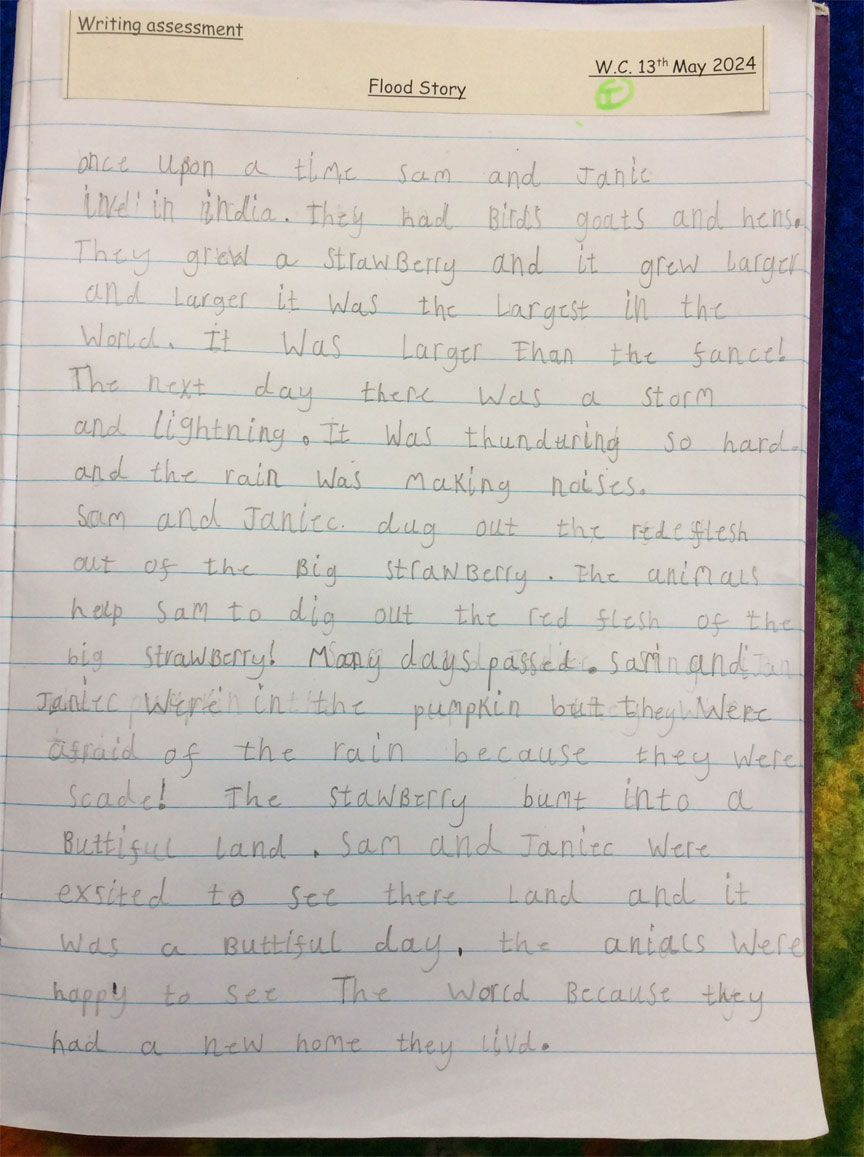 Writing assessment
W.C. 13th May 2024
Flood Story
once upon a time Sam and Janie
live' in india. They had Birds goats and hens.
They grew a strawBerry and it grew larger
and larger it was the Largest in the
World. It was Larger than the fance!
The next day there was a storm
and lightning. It was thunduring so hard.
and the rain was making noises.
Sam and Janiec. dug out the red flesh
out of the Big strawBerry. The animals
help Sam to dig out the red flesh of the
big strawBerry! Many days passed. Sam and
Janiec were in the pumpkin but they were
afraid of the rain because they were
scade! The stawBerry bumt into a
Buttiful land. Sam and Janiec were
exsited to see there Land and it
was a Buttiful day, the anials were
happy to see The World Because they
had a new home they livd.